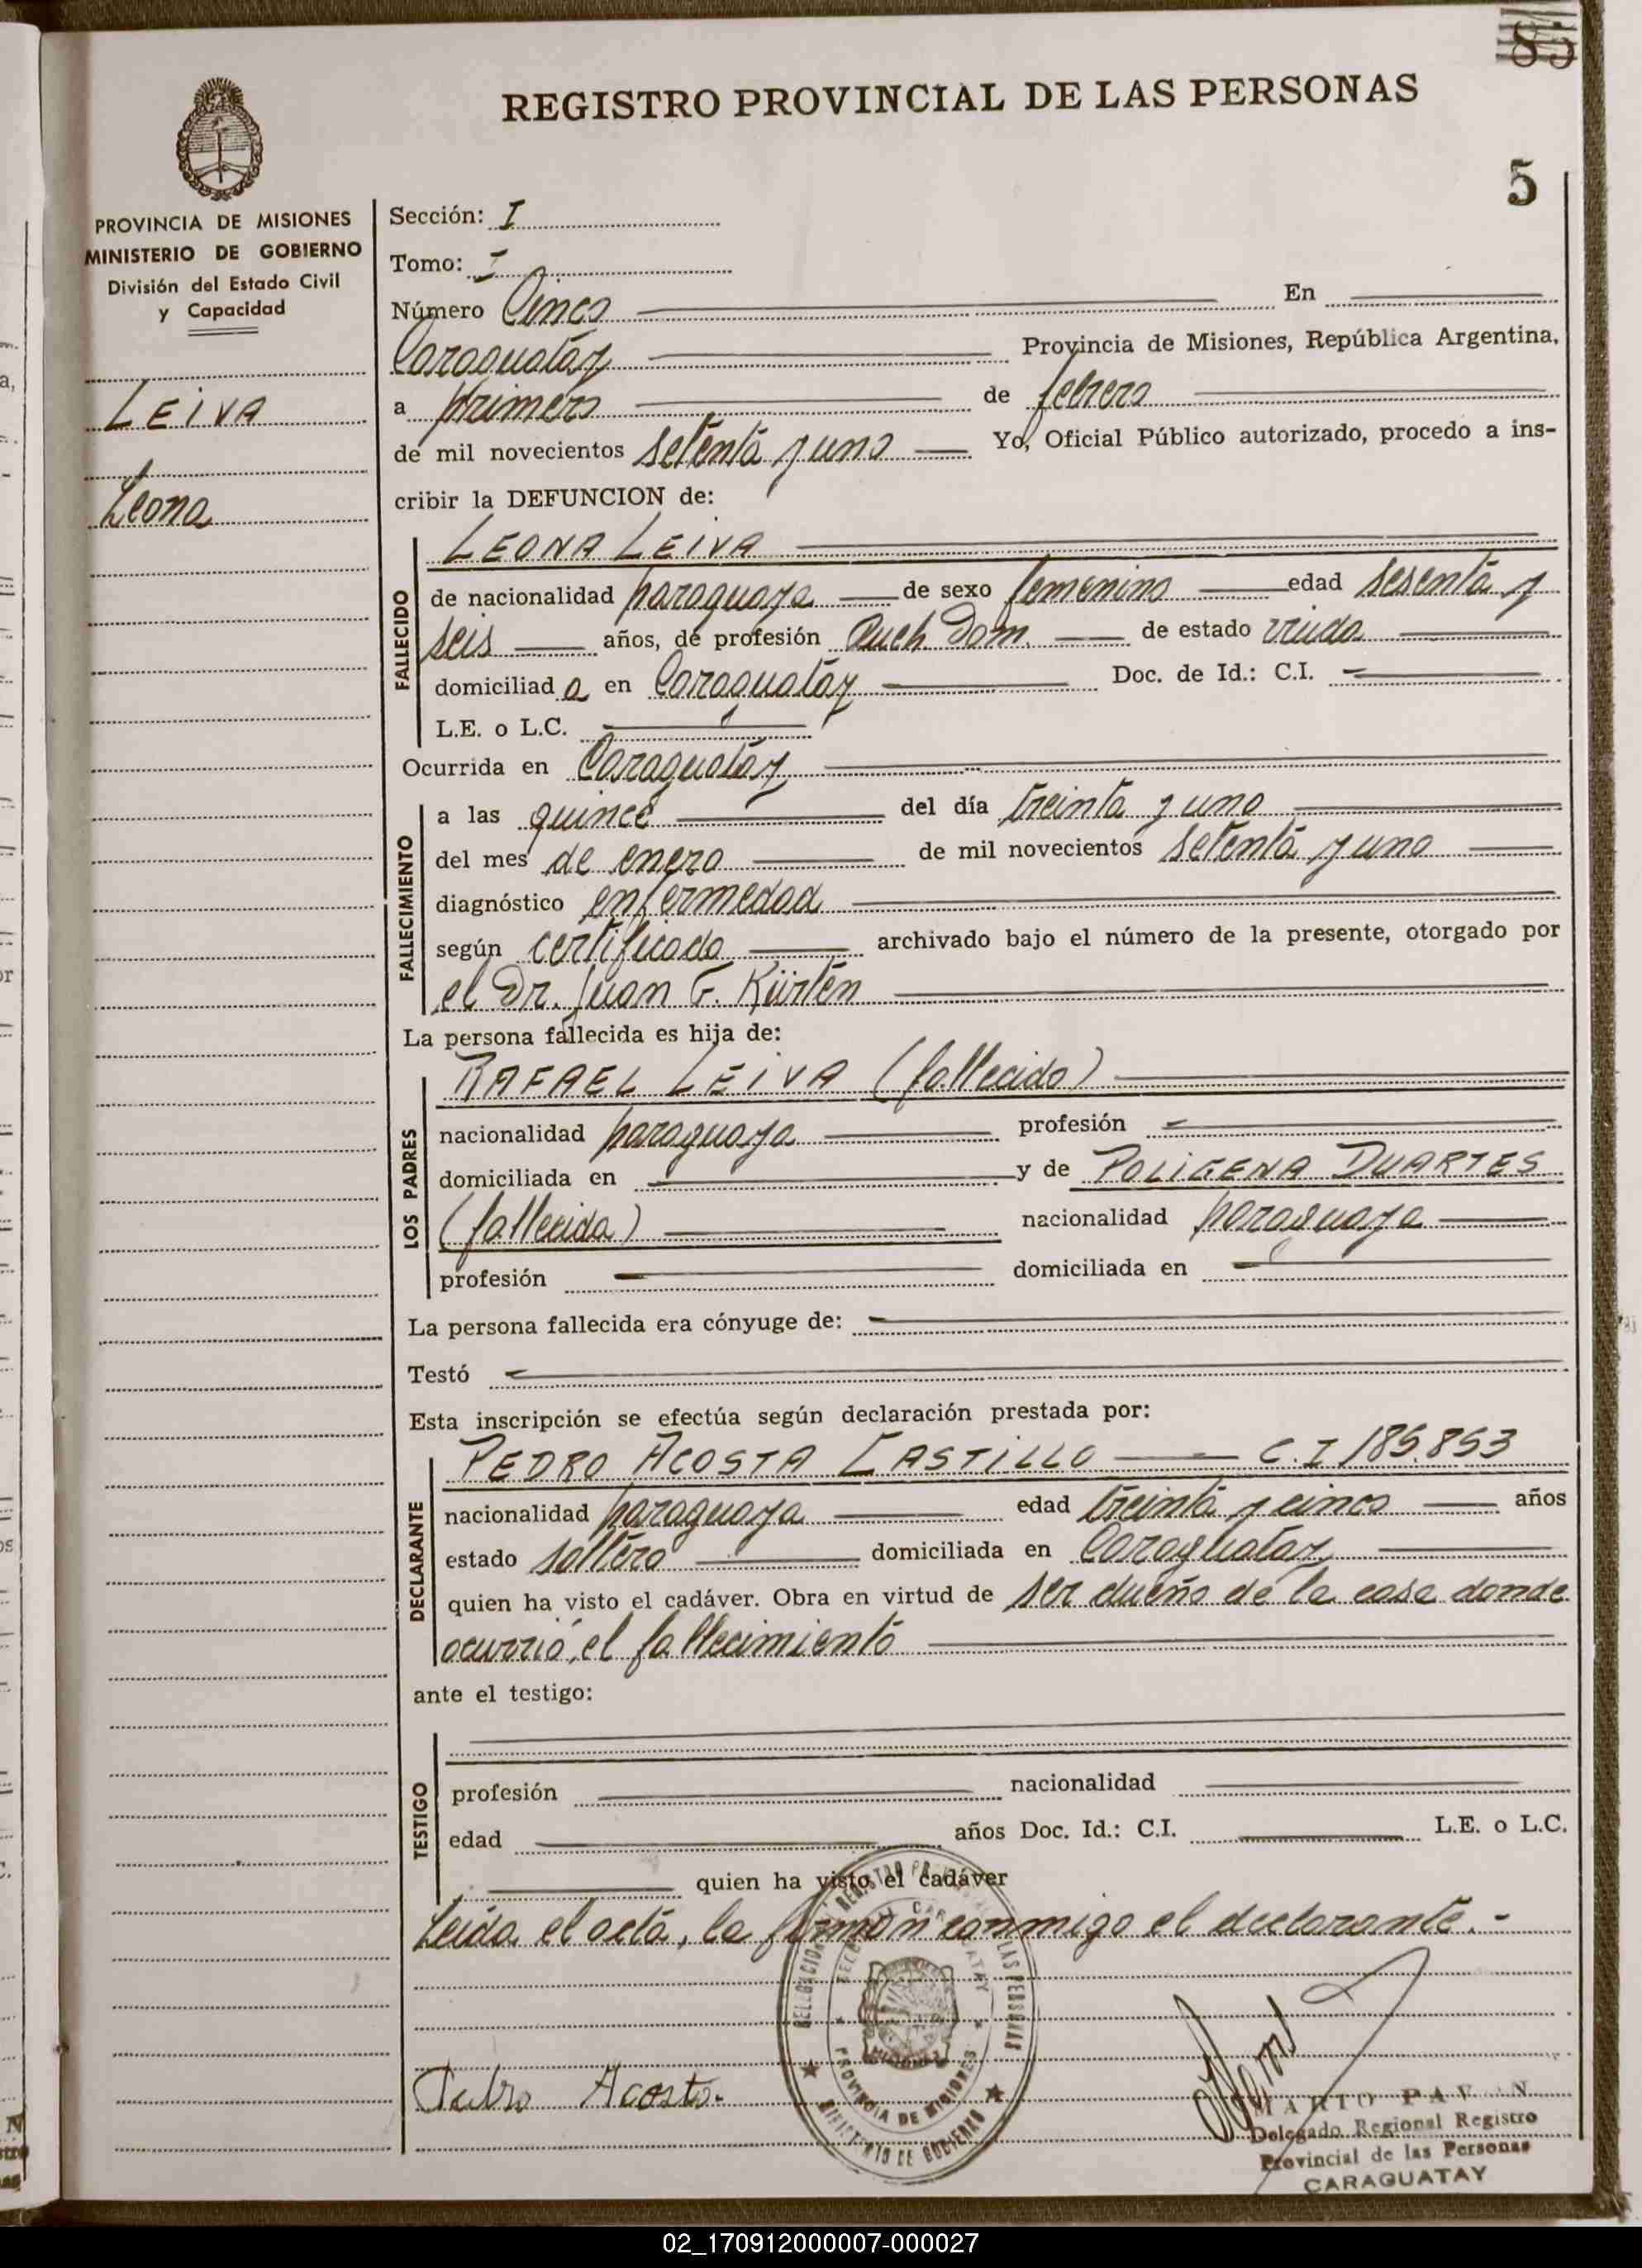 85
REGISTRO PROVINCIAL DE LAS PERSONAS
5
PROVINCIA DE MISIONES
MINISTERIO DE GOBIERNO
División del Estado Civil
y Capacidad
LEIVA
Leona
Sección: I
Tomo: I
Número Cinco En
Caraguatay Provincia de Misiones, República Argentina,
a primero de febrero
de mil novecientos setenta y uno Yo, Oficial Público autorizado, procedo a ins-
cribir la DEFUNCION de:
LEONA LEIVA
FALLECIDO
de nacionalidad paraguaya de sexo femenino edad sesenta y
seis años, de profesión Queh. Dom. de estado viuda
domiciliad a en Caraguatay Doc. de Id.: C.I.
L.E. o L.C.
Ocurrida en Caraguatay
FALLECIMIENTO
a las quince del día treinta y uno
del mes de enero de mil novecientos setenta y uno
diagnóstico enfermedad
según certificado archivado bajo el número de la presente, otorgado por
el Dr. Juan G. Kürten
La persona fallecida es hija de:
LOS PADRES
RAFAEL LEIVA (fallecido)
nacionalidad paraguaya profesión
domiciliada en y de POLIGENA DUARTES
(fallecida) nacionalidad paraguaya
profesión domiciliada en
La persona fallecida era cónyuge de:
Testó
Esta inscripción se efectúa según declaración prestada por:
DECLARANTE
PEDRO ACOSTA CASTILLO C.I 185.853
nacionalidad paraguaya edad treinta y cinco años
estado soltero domiciliada en Caraguatay
quien ha visto el cadáver. Obra en virtud de ser dueño de la casa donde
ocurrió el fallecimiento
ante el testigo:
TESTIGO
profesión nacionalidad
edad años Doc. Id.: C.I. L.E. o L.C.
quien ha visto el cadáver
Leída el acta, la firman conmigo el declarante.-
PROVINCIA DE MISIONES
MINISTERIO DE GOBIERNO
Pedro Acosta.
Delegado Regional Registro
Provincial de las Personas
CARAGUATAY
02_170912000007-000027